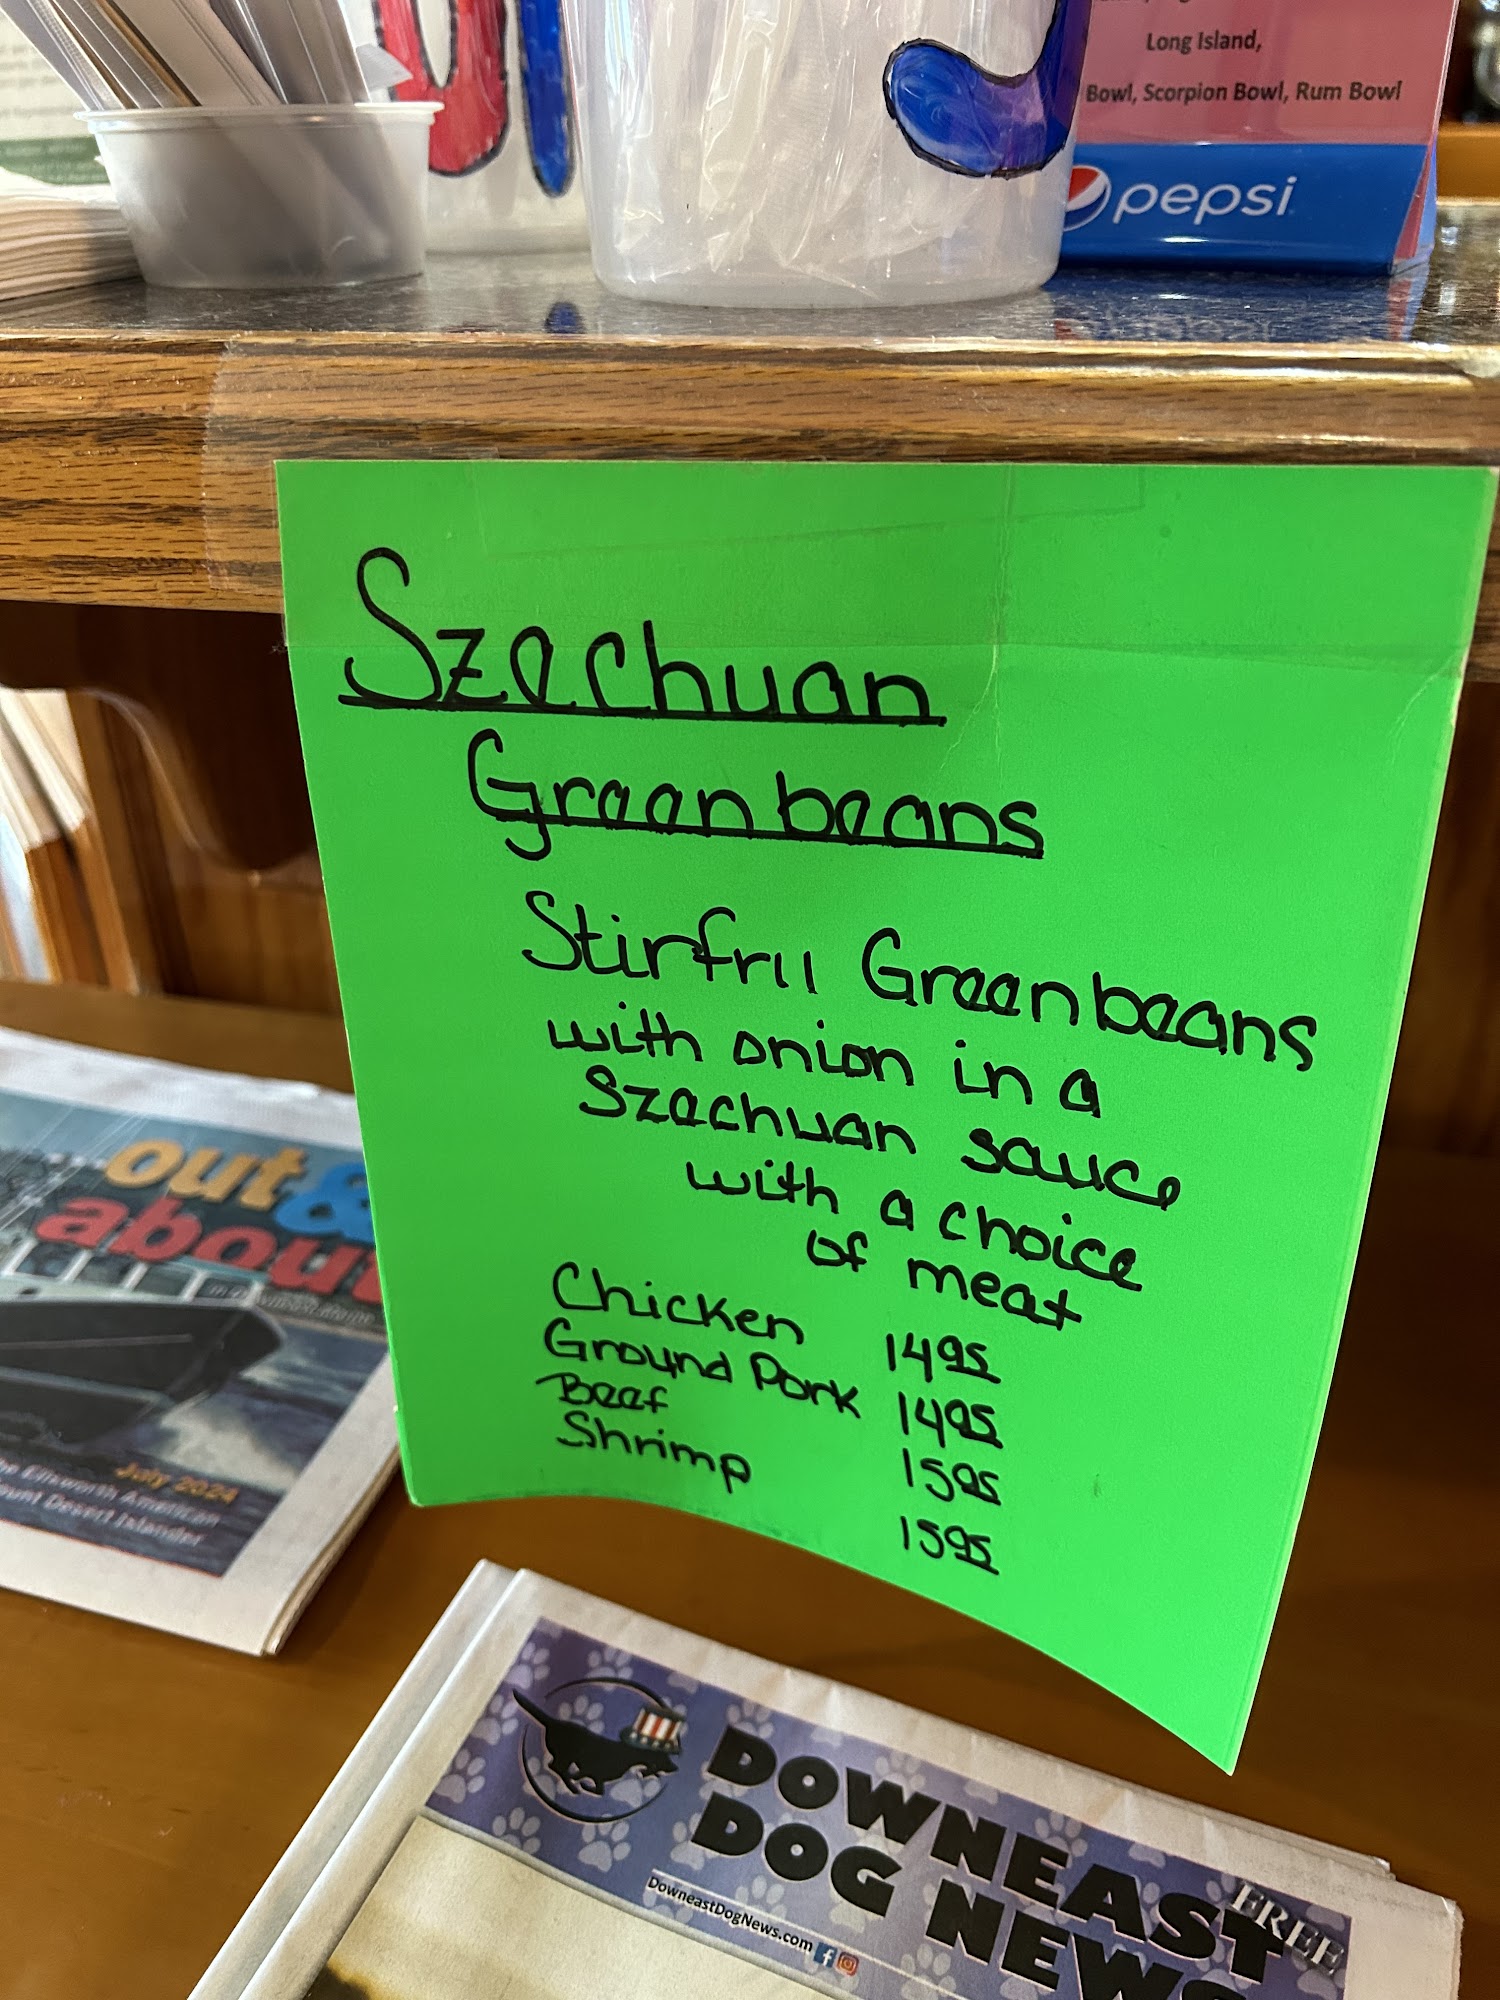 Long Island,
Bowl, Scorpion Bowl, Rum Bowl
pepsi
Szechuan
Greenbeans
Stirfrii Greenbeans
with onion in a
Szechuan sauce
with a choice
of meat
Chicken 1495
Ground Pork 1495
Beef 1595
Shrimp 1595
out &
about
July 2024
Ellsworth American
Mount Desert Islander
DOWNEAST
DOG NEWS
FREE
DowneastDogNews.com